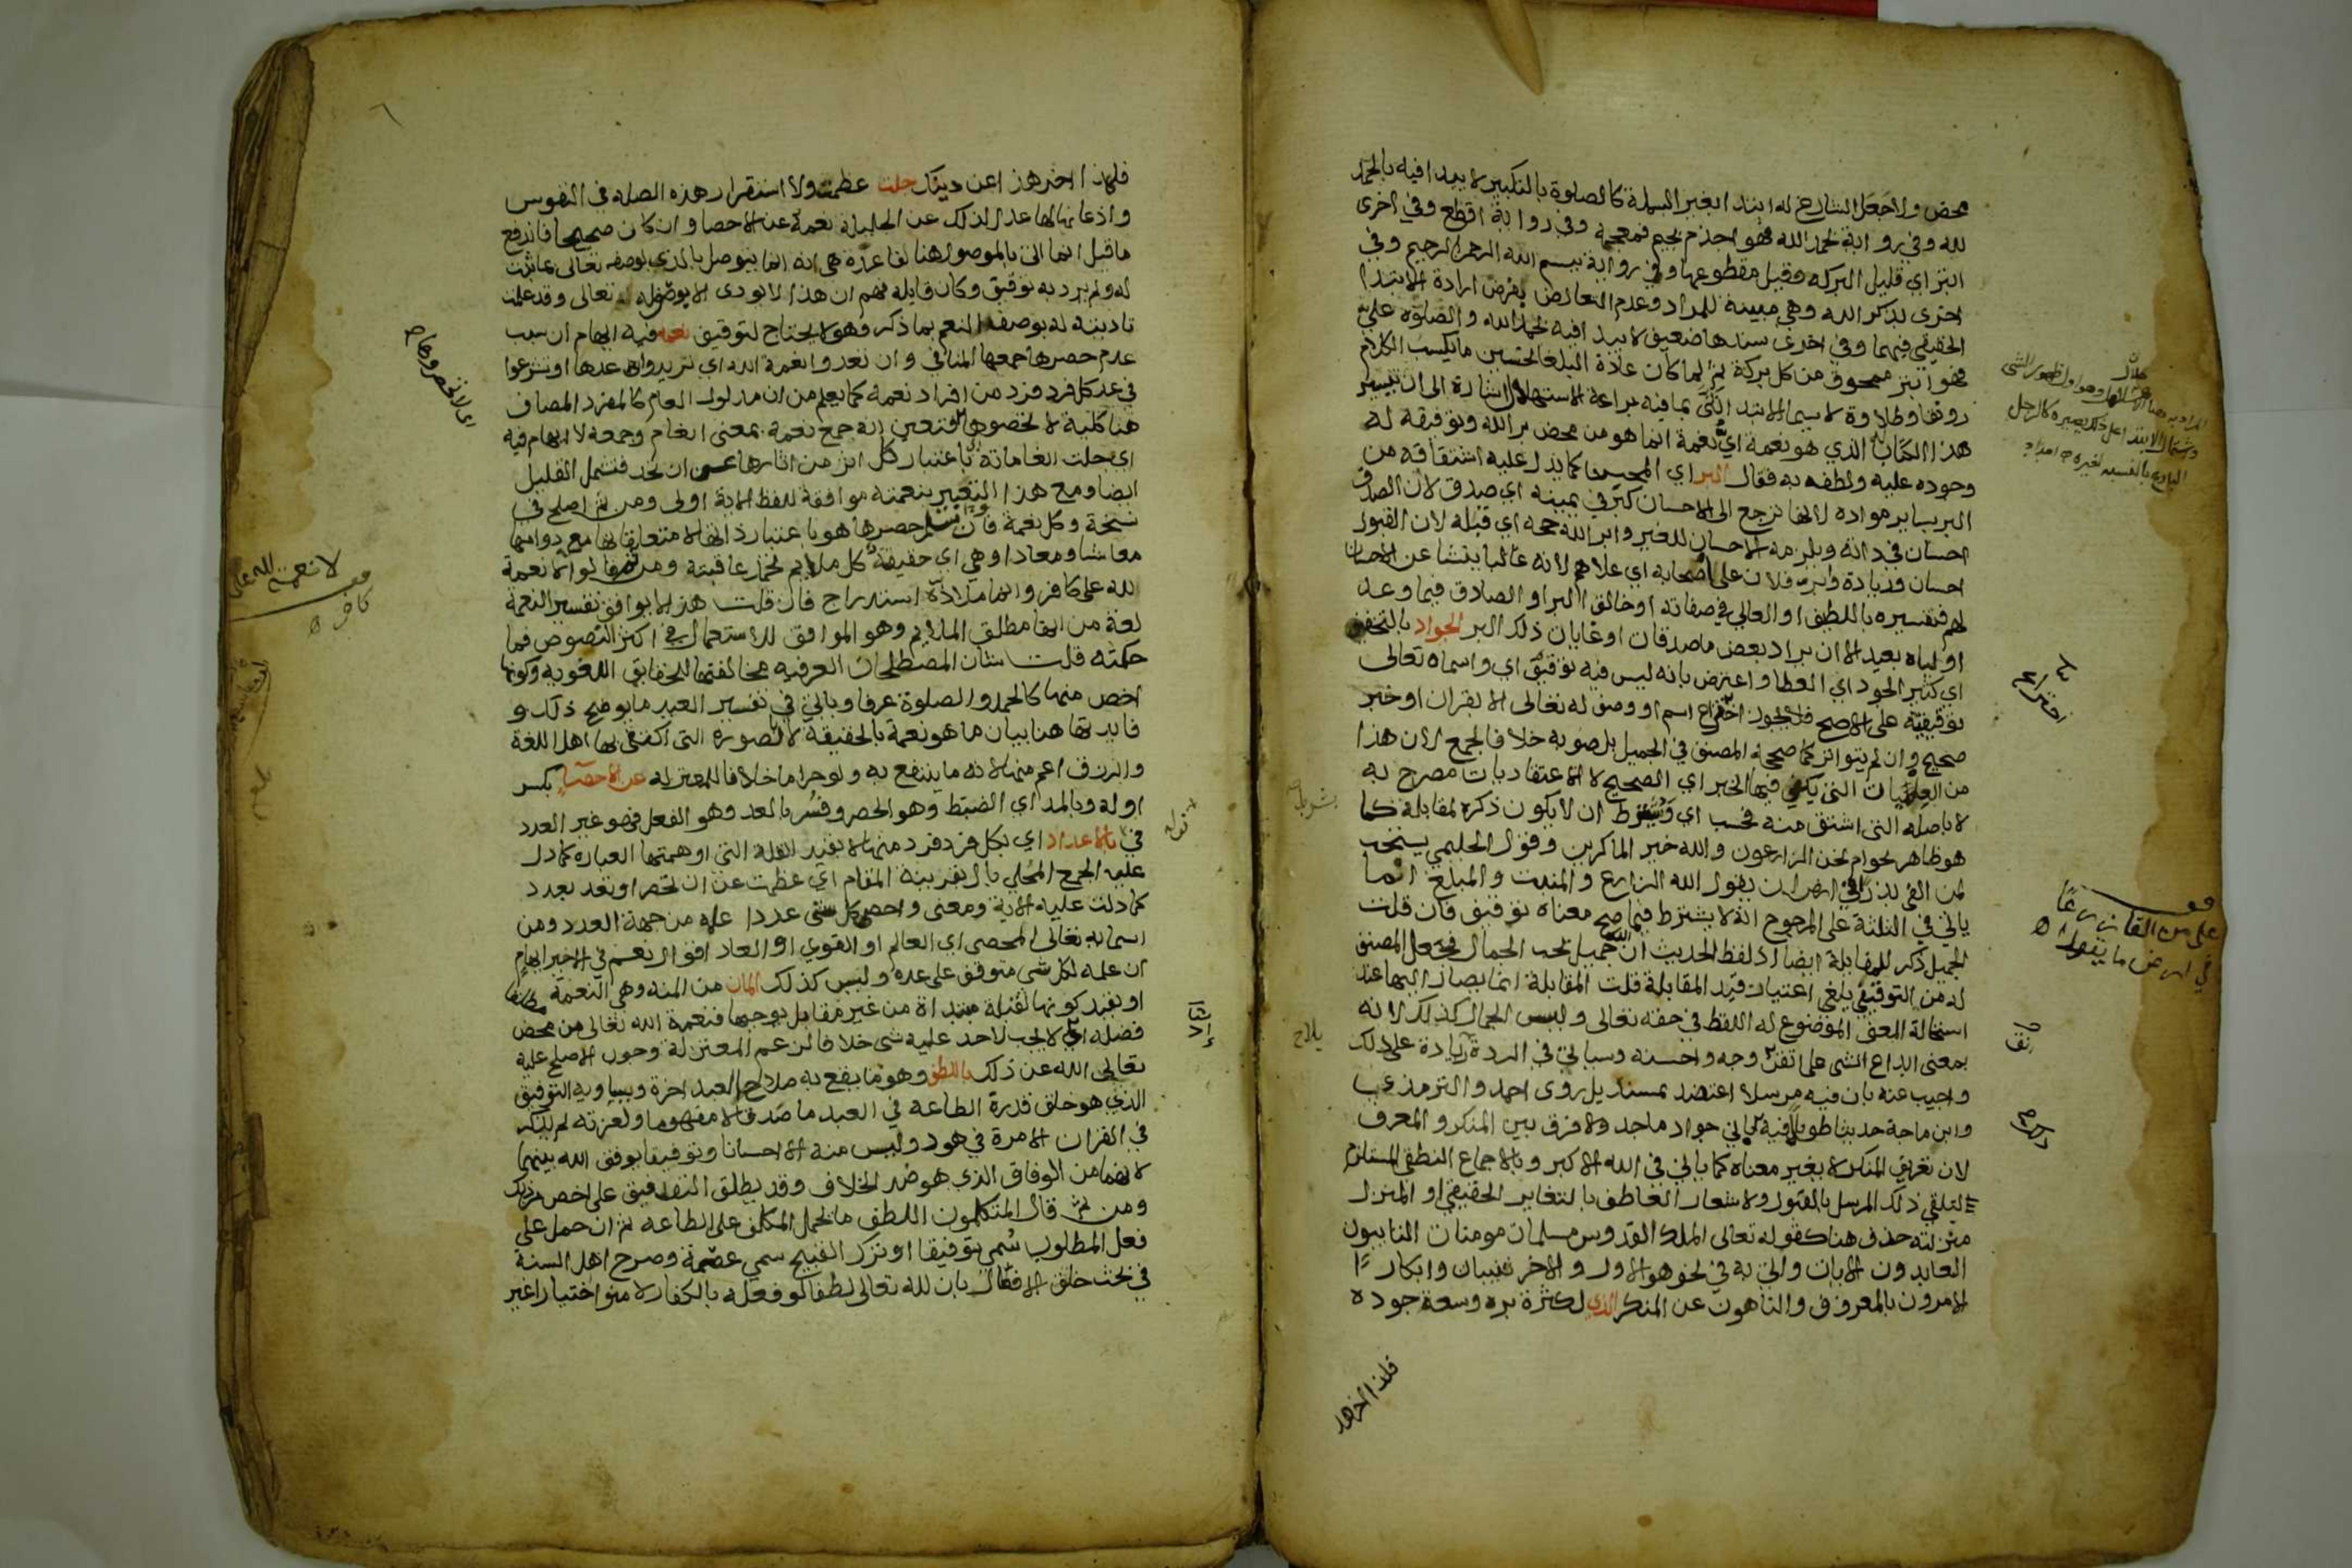 محض ولا جعل الشارع له ابتدا بغير البسملة كالصلوة بالتكبير لا يبدا فيه بالحمد
لله وفي رواية بحمد الله فهو اجذم بجيم فمعجمة وفي رواية اقطع وفي اخرى
ابتر اي قليل البركه وقيل مقطوعها وفي رواية ببسم الله الرحمن الرحيم وفي
اخرى بذكر الله وهي مبينة للمراد وعدم التعارض بفرض ارادة الابتدا
الحقيقي فيهما وفي اخرى سندها ضعيف لا يبدا فيه بحمد الله والصلوة علي
فهو ابتر ممحوق من كل بركة ثم لما كان عادة البلغا تحسين ما يكسب الكلام
رونقا وطلاوة لا سيما الابتدا اتى بما فيه براعة الاستهلال اشارة الى ان تيسير
هذا الكتاب الذي هو نعمة اي نعمة انما هو من محض بر الله وتوفيقه له
وجوده عليه ولطفه به فقال البر اي المحسن كما يدل عليه اشتقاقه من
البر بساير مواده لانها ترجع الى الاحسان كبر في يمينه اي صدق لان الصدق
احسان في ذاته ويلزمه الاحسان للغير وابر الله حجه اي قبله لان القبول
احسان وزيادة وابر فلان على اصحابه اي علاهم لانه غالبا ينشا عن الاحسان
لهم فتفسيره باللطيف او العالي في صفاته او خالق البر او الصادق فيما وعد
اولياه بعيد الا ان يراد بعض ماصدقات او غايات ذلك البر الجواد بالتخفيف
اي كثير الجود اي العطا واعترض بانه ليس فيه توقيف اي واسماه تعالى
توقيفية على الاصح فلا يجوز اختراع اسم او وصف له تعالى الا بقران او خبر
صحيح وان لم يتواتر كما صححه المصنف في الجميل بل صوبه خلافا لجمع لان هذا
من العمليات التي يكفي فيها الخبر اي الصحيح لا الاعتقاديات مصرح به
لا باصله التي اشتق منه فحسب اي وشرط ان لا يكون ذكره لمقابلة كما
هو ظاهر نحو ام نحن الزارعون والله خير الماكرين وقول الحليمي يستحب
لمن القى بذرا في ارض ان يقول الله الزارع والمنبت والمبلغ انما
ياتي في الثلثة على المرجوح انه لا يشترط فيما صح معناه توقيف فان قلت
الجميل ذكر للمقابلة ايضا اذ لفظ الحديث ان الله جميل يحب الجمال فجعل المصنف
له من التوقيفي يلغي اعتبار قيد المقابلة قلت المقابلة انما يصار اليها عند
استحالة المعنى الموضوع له اللفظ في حقه تعالى وليس الجمال كذلك لانه
بمعنى ابداع الشي على اتقن وجه واحسنه وسياتي في الردة زيادة على ذلك
واجيب عنه بان فيه مرسلا اعتضد بمسند بل روى احمد والترمذي
وابن ماجة حديثا طويلا فيه باني جواد ماجد ولا فرق بين المنكر والمعرف
لان تعريف المنكر لا يغير معناه كما ياتي في الله الاكبر وبالاجماع النطقي المستلزم
لتلقي ذلك المرسل بالقبول ولاشعار العاطف بالتغاير الحقيقي او المنزل
منزلته حذف هنا كقوله تعالى الملك القدوس مسلمات مومنات التايبون
العابدون الايات واتي به في نحو هو الاول والاخر ثيبات وابكارا
الامرون بالمعروف والناهون عن المنكر الذي لكثرة بره وسعة جوده
فلذا اخرهذ
اختراع
على من القى بذرا
في ارض ما يقول
اتقن
فلهذا اخر هذا عن دينك جلت عظمت ولا استقرار هذه الصله في النفوس
واذعانها لها عدل لذلك عن الجليلة نعمة عن الاحصا وان كان صحيحا فاندفع
ما قيل انما اتى بالموصول هنا لقاعدة هي انه انما يتوصل بالذي لوصفه تعالى بما ثبت
له ولم يرد به توقيف وكان قايله فهم ان هذا لا يودى الا بوصفه له تعالى وقد علمت
تاديته له بوصف النعم بما ذكر فهو لا يحتاج لتوقيف نعمه فيه ايهام ان سبب
عدم حصرها جمعها المنافي وان تعدوا نعمة الله اي تريدوا عدها او تشرعوا
في عد كل فرد فرد من افراد نعمه كما يعلم من ان مدلول العام كالمفرد المضاف
هنا كلية لا تحصوها فتعين انه جمع نعمة بمعنى انعام وجمعه لا ايهام فيه
اي جلت انعاماته باعتبار كل اثر من اثارها عن ان تحد فتشمل القليل
ايضا ومع هذا التعبير بنعمته موافقة للفظ الاية اولى ومن ثم اصلح في
نسخة وكل نعمة وان سلم حصرها هو باعتبار ذاتها لا متعلقاتها مع دوامها
معاشا ومعادا وهي اي حقيقة كل ملايم تحمد عاقبته ومن ثم قالوا لا نعمة
لله على كافر وانما ملاذه استدراج فان قلت هذا لا يوافق تفسير النعمة
لغة من انها مطلق الملايم وهو الموافق للاستعمال في اكثر النصوص فما
حكمته قلت شان المصطلحات العرفيه مخالفتها للحقايق اللغويه وكونها
اخص منها كالحمد والصلوة عرفا وياتي في تفسير العيد ما يوضح ذلك و
فايدتها هنا بيان ما هو نعمة بالحقيقة لا بالصورة التي اكتفى بها اهل اللغة
والرزق اعم منها لانه ما ينتفع به ولو حراما خلافا للمعتزله عن الاحصاء بكسر
اوله وبالمد اي الضبط وهو الحصر وفسر بالعد وهو الفعل فهو غير العدد
في بالاعداد اي بكل فرد فرد منها لا يفيد القلة التي اوهمتها العبارة كما دل
عليه الجمع المحلى بال بقرينة المقام اي عظمت عن ان تحصر او تعد بعدد
كما دلت عليه الاية ومعنى واحصى كل شي عددا علمه من جهة العدد ومن
اسمايه تعالى المحصي اي العالم او القوي او العاد اقوال نعم في الاخير ايهام
ان علمه لكل شي متوقف على عده وليس كذلك المان من المنه وهي النعمة مطلقا
او بقيد كونها ثقيلة مبتداة من غير مقابل يوجبها فنعمة الله تعالى من محض
فضله اذ لا يجب لاحد عليه شي خلافا لزعم المعتزلة وجوب الاصلح عليه
تعالى الله عن ذلك باللطف وهو ما يقع به صلاح العبد اخرة ويساويه التوفيق
الذي هو خلق قدرة الطاعة في العبد ما صدقا لا مفهوما ولعزته لم يذكر
في القران الا مرة في هود وليس منه الا احسانا وتوفيقا يوفق الله بينهما
لانهما من الوفاق الذي هو ضد الخلاف وقد يطلق التوفيق على اخص من ذلك
ومن ثم قال المتكلمون اللطف ما يحمل المكلف على الطاعة ثم ان حمل على
فعل المطلوب سمي توفيقا او ترك القبيح سمي عصمة وصرح اهل السنة
في بحث خلق الافعال بان لله تعالى لطفا لو فعله بالكفار لامنوا اختيارا غير
لا نعمة لله على
كافر